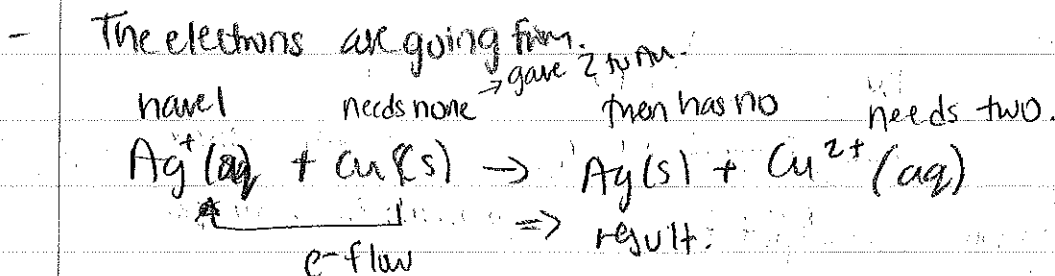 - The electrons are going from.
→ gave 2
have 1 needs none then has no needs two.
Ag⁺(aq) + Cu(s) → Ag(s) + Cu²⁺(aq)
e- flow => result.